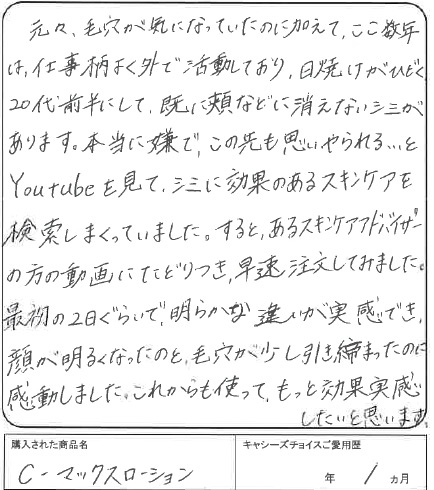 元々、毛穴が気になっていたのに加えて、ここ数年
は、仕事柄よく外で活動しており、日焼けがひどく、
20代前半にして、既に頬などに消えないシミが
あります。本当に嫌で、この先も思いやられる…と
Youtubeを見て、シミに効果のあるスキンケアを
検索しまくっていました。すると、あるスキンケアアドバイザー
の方の動画にたどりつき、早速注文してみました。
最初の2日ぐらいで、明らかな違いが実感でき、
顔が明るくなったのと、毛穴が少し引き締まったのに
感動しました。これからも使って、もっと効果実感
したいと思います。
購入された商品名 キャシーズチョイスご愛用歴
C-マックスローション 年 1 ヵ月